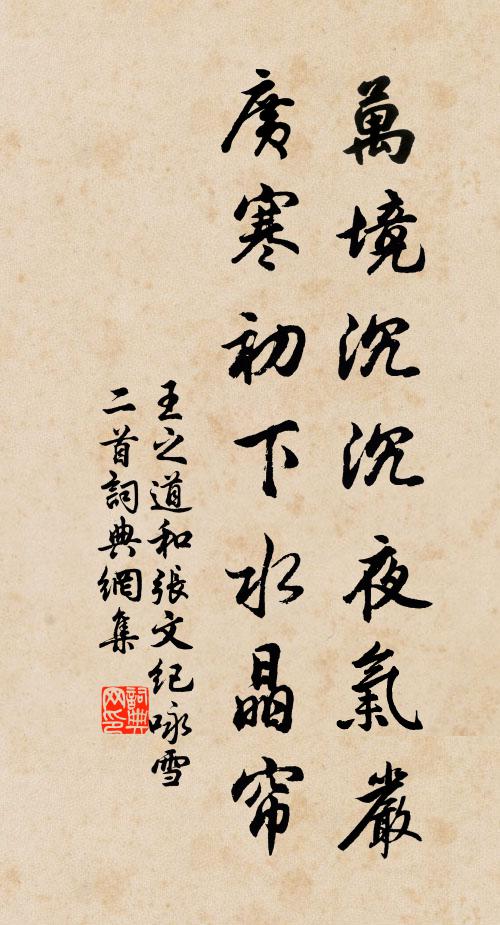 萬境沉沉夜氣嚴
廣寒初下水晶帘
王之道和張文纪咏雪
二首詞典網集
詞典
网印